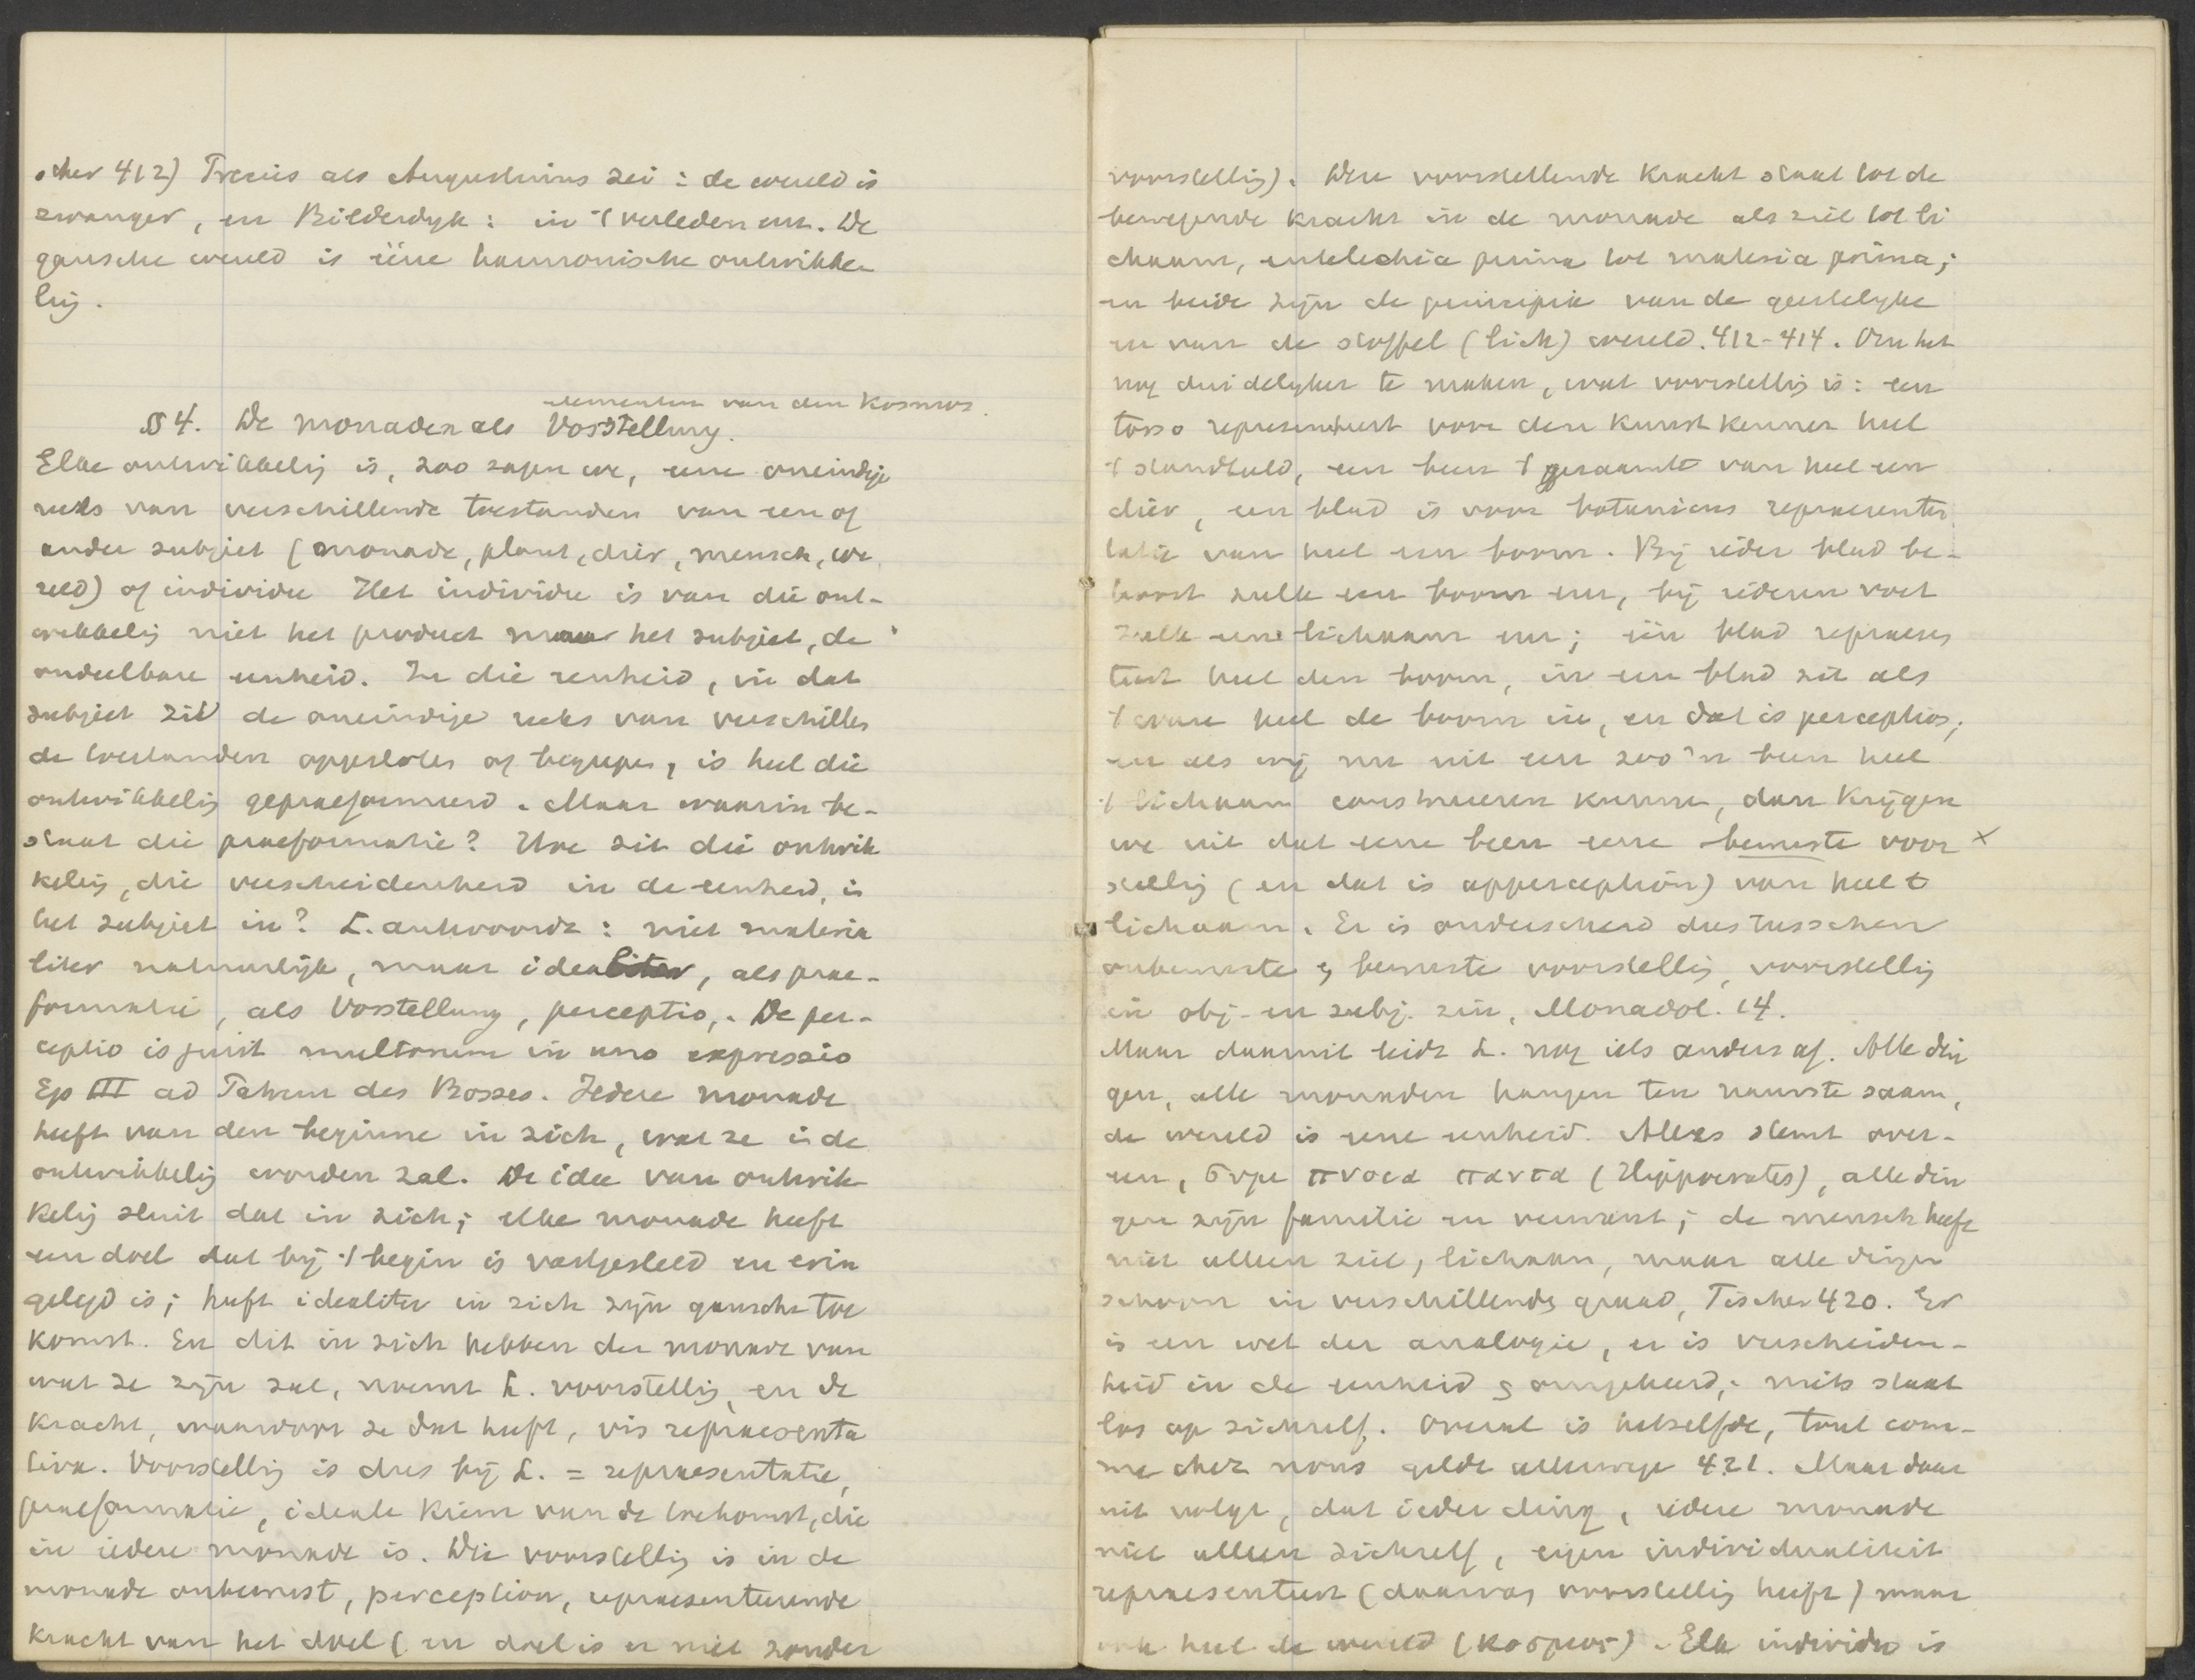 scher 412) Precies als Augustinus zei : de wereld is
zwanger, en Bilderdyk : in 't verleden enz. De
gansche wereld is ééne harmonische ontwikke
lig.
elementen van den Kosmos.
§ 4. De monaden als Vorstellung.
Elke ontwikkelig is, zoo zagen we, eene oneindige
reeks van verschillende toestanden van een of
ander subject (monade, plant, dier, mensch, we
reld) of individu Het individu is van die ont-
wikkelig niet het product maar het subject, de
ondeelbare eenheid. In die eenheid, in dat
subject zit de oneindige reeks van verschillen
de toestanden opgesloten of begrepen, is heel die
ontwikkelig gepraeformeerd. Maar waarin be-
staat die praeformatie? Hoe zit die ontwik
kelig, die verscheidenheid in de eenheid, in
het subject in? L. antwoordt : niet materia
liter natuurlijk, maar idealiter, als prae-
formatie, als Vorstellung, perceptio,. De per-
ceptio is juist multorum in uno expressio
Ep III ad Patrem des Bosses. Iedere monade
heeft van den beginne in zich, wat ze in de
ontwikkelig worden zal. De idee van ontwik
kelig sluit dat in zich; elke monade heeft
een doel dat bij 't begin is vastgesteld en erin
gelegd is; heeft idealiter in zich zijn gansche toe
komst. En dit in zich hebben der monade van
wat ze zijn zal, noemt L. voorstellig, en de
kracht, waardoor ze dat heeft, vis repraesenta
tiva. Voorstellig is dus bij L. = repraesentatie,
praeformatie, ideale kiem van de toekomst, die
in iedere monade is. Die voorstellig is in de
monade onbewust, perception, repraesenteerende
kracht van het doel (en doel is er niet zonder
voorstellig). Deze voorstellende kracht staat tot de
bewegende kracht in de monade als ziel tot li
chaam, entelechia prima tot materia prima;
en beide zijn de principia van de geestelyke
en van de stoffel (lich) wereld. 412-414. Om het
nog duidelyker te maken, wat voorstellig is : een
torso representeert voor den kunstkenner heel
't standbeeld, een been 't geraamte van heel een
dier, een blad is voor botanicus repraesenta
tatie van heel een boom. Bij ieder blad be-
hoort zulk een boom enz, bij iederen voet
zulk een lichaam enz; één blad repraesen
teert heel den boom, in een blad zit als
't ware heel de boom in, en dat is perceptio;
en als wij nu uit een zoo'n been heel
't lichaam construeeren kunnen, dan krijgen
we uit dat eene been eene bewuste voor x
stellig (en dat is apperception) van heel t
lichaam. Er is onderscheid dus tusschen
onbewuste en bewuste voorstellig, voorstellig
in obj- en subj. zin, Monadol. 14.
Maar daaruit leidt L. nog iets anders af. Alle din
gen, alle monaden hangen ten nauwste saam,
de wereld is eene eenheid. Alles stemt over-
een, συμ πνοια παντα (Hippocrates), alle din
gen zijn familie en verwant; de mensch heeft
niet alleen ziel, lichaam, maar alle dingen
schoon in verschillende graad, Fischer 420. Er
is een wet der analogie, er is verscheiden-
heid in de eenheid en omgekeerd; niets staat
los op zichzelf. Overal is hetzelfde, tout com-
me chez nous geldt allerwege 421. Maar daar
uit volgt, dat ieder ding, iedere monade
niet alleen zichzelf, eigen individualiteit
repraesenteert (daarvan voorstellig heeft) maar
ook heel de wereld (Κοσμος). Elk individu is